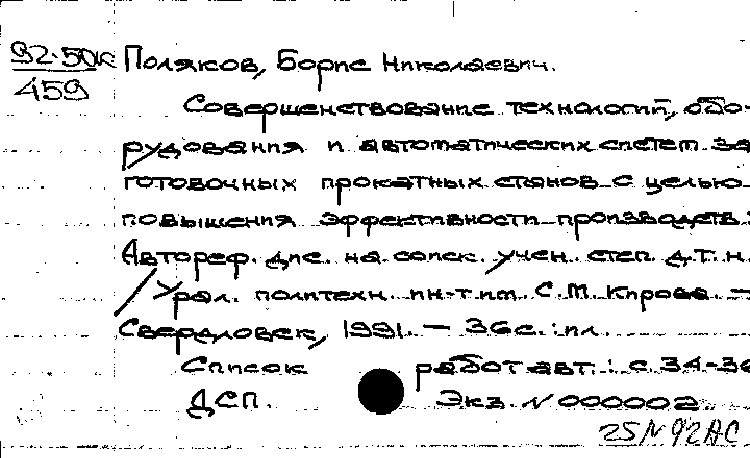 92-50к Поляков, Борис Николаевич.
459
Совершенствование технологий, обо-
рудования и автоматических систем за-
готовочных прокатных станов с целью
повышения эффективности производств:
Автореф. дис. на соиск. учен. степ. д.т.н.
/ Урал. политехн. ин-т им. С.М. Кирова. —
Свердловск, 1991. — 36 с.: ил.
Список работ авт.: с. 34-36
ДСП. Экз. № 000002
25 № 92 АС